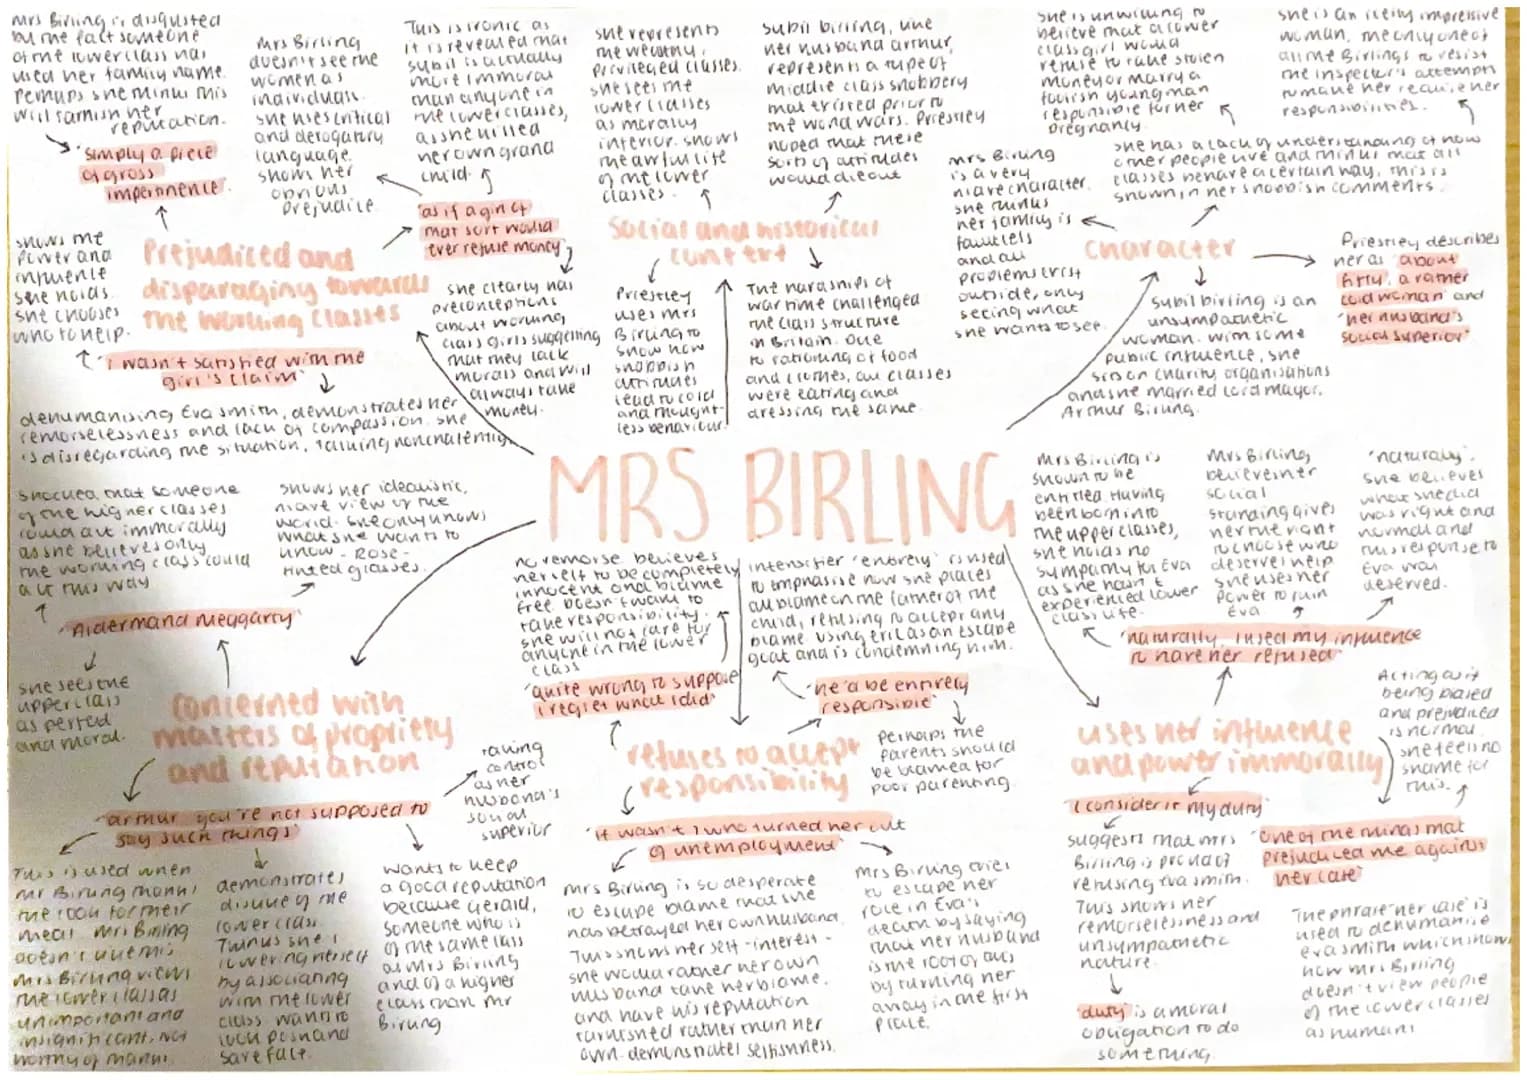 Mrs Birling is disgusted
by the fact someone
of the lower class has
used her family name.
Perhaps she thinks this
will tarnish her
reputation.
'simply a piece
of gross
impertinence'.
Mrs Birling
doesn't see the
women as
individuals.
She uses critical
and derogatory
language.
shows her
obvious
prejudice.
This is ironic as
it is revealed that
Sybil is actually
more immoral
than anyone in
the lower classes,
as she killed
her own grand
child.
'as if a girl of
that sort would
ever refuse money'
she clearly has
preconceptions
about working
class girls suggesting
that they lack
morals and will
always take
money.
Prejudiced and
disparaging towards
the working classes
shows the
power and
influence
she holds.
she chooses
who to help.
'I wasn't satisfied with the
girl's claim'
dehumanising Eva Smith, demonstrates her
remorselessness and lack of compassion. she
is disregarding the situation, talking nonchalently.
she represents
the wealthy,
privileged classes.
she sees the
lower classes
as morally
inferior. shows
the awful life
of the lower
classes.
Sybil birling, like
her husband arthur,
represents a type of
middle class snobbery
that existed prior to
the world wars. Priestley
hoped that these
sorts of attitudes
would die out
Social and historical
context
Priestley
uses Mrs
Birling to
show how
snobbish
attitudes
lead to cold
and thought-
less behaviour.
The hardships of
war time challenged
the class structure
in Britain. Due
to rationing of food
and clothes, all classes
were eating and
dressing the same.
she is unwilling to
believe that a lower
class girl would
refuse to take stolen
money or marry a
foolish young man
responsible for her
pregnancy.
she is an icily impressive
woman, the only one of
all the Birlings to resist
the inspector's attempts
to make her realise her
responsibilities.
she has a lack of understanding of how
other people live and thinks that all
classes behave a certain way. this is
shown in her snobbish comments.
Mrs Birling
is a very
niave character.
she thinks
her family is
faultless
and all
problems exist
outside, only
seeing what
she wants to see.
Character
Priestley describes
her as 'about
fifty, a rather
cold woman' and
'her husband's
social superior'
Sybil birling is an
unsympathetic
woman. with some
public influence, she
sits on charity organisations
and she married Lord mayor,
Arthur Birling.
MRS BIRLING
shocked that someone
of the higher classes
could act immorally
as she believes only
the working class could
act this way
shows her idealistic,
niave view of the
world. she only knows
what she wants to
know - Rose-
tinted glasses.
'Alderman Meggarty'
she sees the
upper class
as perfect
and moral.
Concerned with
matters of propriety
and reputation
taking
control
as her
husband's
social
superior
'arthur you're not supposed to
say such things'
This is used when
Mr Birling thanks
the cook for their
meal. Mrs Birling
doesn't like this.
Mrs Birling views
the lower class as
unimportant and
insignificant, not
worthy of thanks.
demonstrates
dislike of the
lower class.
Thinks she is
lowering herself
by associating
with the lower
class. want to
look posh and
save face.
wants to keep
a good reputation
because Gerald,
someone who is
of the same class
as Mrs Birling
and of a higher
class than Mr
Birling
no remorse. believes
herself to be completely
innocent and blame
free. Doesn't want to
take responsibility.
she will not care for
anyone in the lower
class
'quite wrong to suppose
I regret what I did'
intensifier 'entirely' is used
to emphasise how she places
all blame on the father of the
child, refusing to accept any
blame. using eric as an escape
goat and is condemning him.
'he'd be entirely
responsible'
Perhaps the
parents should
be blamed for
poor parenting.
refuses to accept
responsibility
'it wasn't I who turned her out
of unemployment'
Mrs Birling is so desperate
to escape blame that she
has betrayed her own husband.
This shows her self-interest -
she would rather her own
husband take her blame,
and have his reputation
tarnished rather than her
own. demonstrates selfishness.
Mrs Birling tries
to escape her
role in Eva's
death by saying
that her husband
is the root of this
by turning her
away in the first
place.
Mrs Birling is
shown to be
entitled. Having
been born into
the upper classes,
she holds no
sympathy for Eva
as she hasn't
experienced lower
class life.
Mrs Birling
believes her
social
standing gives
her the right
to choose who
deserves help
she uses her
power to ruin
Eva
'naturally'.
she believes
what she did
was right and
normal and
this response to
Eva was
deserved.
'naturally, I used my influence
to have her refused'
uses her influence
and power immorally
Acting as if
being biased
and prejudiced
is normal.
she feels no
shame for
this.
'I consider it my duty'
suggests that Mrs
Birling is proud of
refusing Eva Smith.
This shows her
remorselessness and
unsympathetic
nature.
'duty' is a moral
obligation to do
something.
'One of the things that
prejudiced me against
her case'
The phrase 'her case' is
used to dehumanise
eva smith which shows
how Mrs Birling
doesn't view people
of the lower classes
as humans